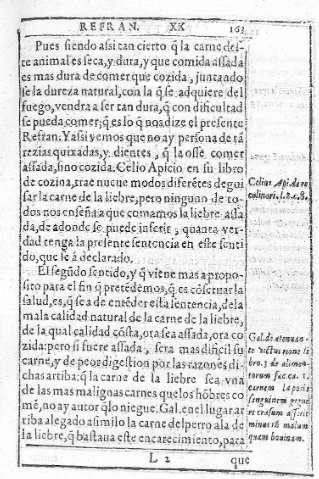 REFRAN. XX 163
Pues siendo assi tan cierto q̃ la carne des-
te animal es seca, y dura, y que comida assada
es mas dura de comer que cozida, juntando
se la dureza natural, con la q̃ se adquiere del
fuego, vendra a ser tan dura, q̃ con dificultad
se pueda comer; q̃ es lo q̃ nos dize el presente
Refran. Y assi vemos que no ay persona de tã
rezias quixadas, y dientes, q̃ la osse comer
assada, sino cozida. Celio Apicio en su libro
de cozina, trae nueue modos diferẽtes de gui
sar la carne de la liebre, pero ninguno de to
dos nos enseña a que comamos la liebre assa
da, de adonde se puede inferir, quanta ver-
dad tenga la presente sentencia en este senti
do, que le à declarado.
El segũdo sentido, y q̃ viene mas a propo-
sito para el fin q̃ pretẽdemos, q̃ es cõseruar la
salud, es, q̃ se a de entẽder esta sentencia, de la
mala calidad natural de la carne de la liebre,
de la qual calidad cõsta, ora sea assada, ora co
zida: pero si fuere assada, sera mas dificil su
carne, y de peor digestion por las razones di-
chas arriba: q̃ la carne de la liebre sea vna
de las mas malignas carnes que los hõbres co
mẽ, no ay autor q̃ lo niegue. Gal. en el lugar ar
riba alegado asimilo la carne del perro a la de
la liebre, q̃ bastaua este encarecimiento, para
L 2 que
Celius Api. de re
culinari. l. 8. c. 8.
Gal. de atenuan-
te victus ratione li
bro. 3. de alimen-
torum fac. ca. 1.
carnem leporis
sanguinem gigne
re crasum asserit
minus tñ malum
quam bouinam.